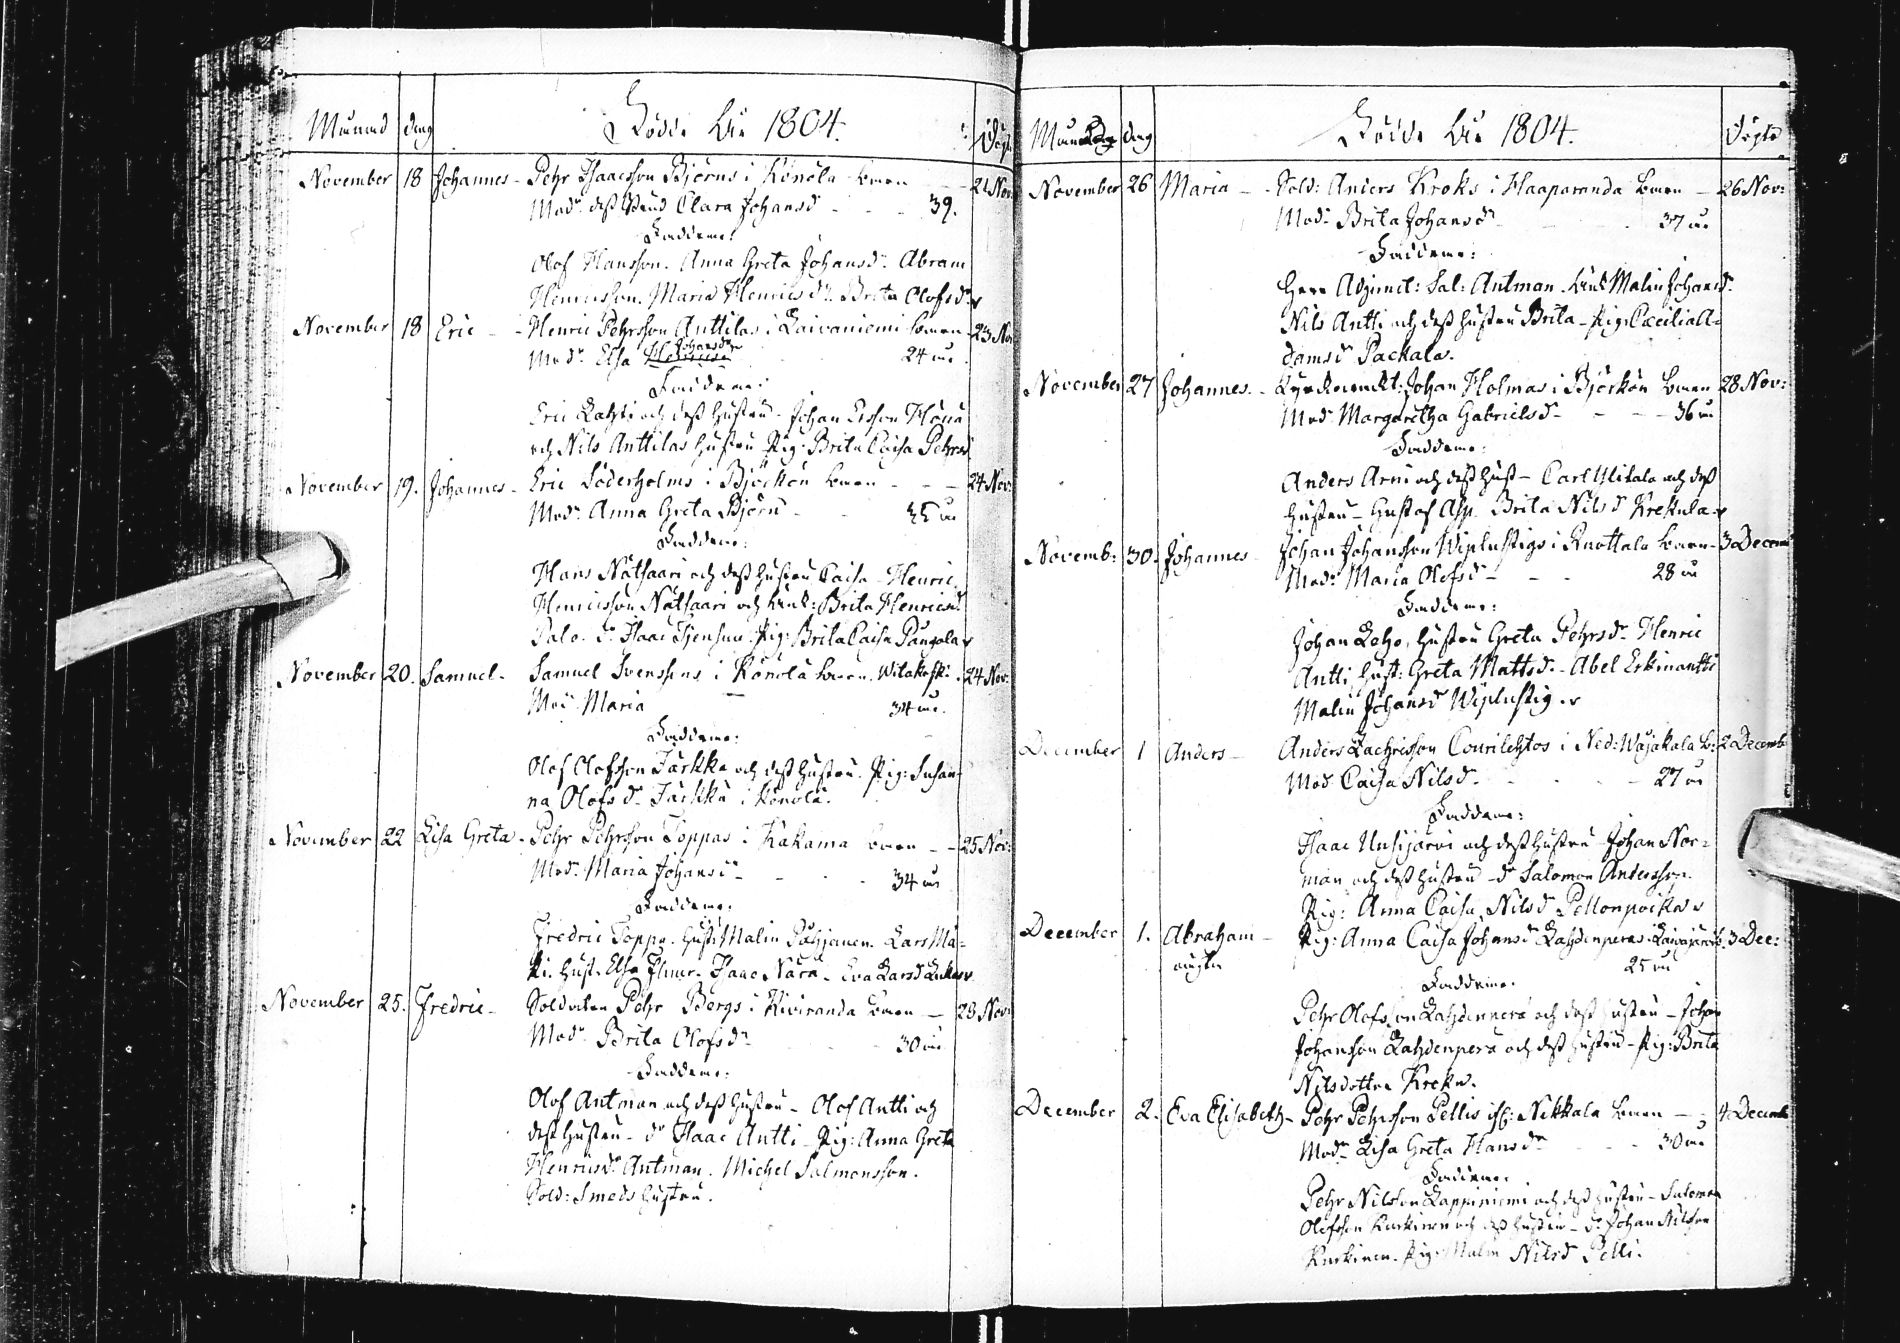 Månad dag Födde år 1804. Döpt
November 18 Johannes - Pehr Isacsson Björns i Könölä barn - 21 Nov:
Mod: dess Hustru Clara Johansdr - 39.
Faddrarne:
Olof Hansson. Anna Greta Johansdr. Abram
Henricsson. Maria Henricsdr. Brita Olofsdr
November 18 Eric - Henric Pehrsson Anttilas i Laivaniemi barn - 23 Nov
Modr. Elsa Johansdr 24 år
Faddrarne:
Eric Lahti och dess hustru. Johan Ersson
och Nils Anttilas hustru Pig: Brita Caisa Pehrsd
November 19. Johannes - Eric Söderholms i Björkön barn - - - 24 Nov:
Modr. Anna Greta Björn - 35 år
Faddrarne:
Hans Nätsaari och dess hustru Caisa - Henric
Henricsson Nätsaari och Enk: Brita Henricsd.
Palo. Dr. Isaac Pig: Brita Caisa
November 20. Samuel - Samuel Svenssons i Könölä barn. Witakoski. 24 Nov:
Mod: Maria 34 år.
Faddrarne:
Olof Olofsson Järkkä och dess hustru. Pig: Susan-
na Olofsdr Järkkä i Könölä.
November 22 Lisa Greta - Pehr Pehrsson Toppas i Kakama barn - - 25 Nov:
Modr. Maria Johansdr - 34 år
Faddrarne:
Fredric Toppo. Hust. Malin Lars Ma-
ki. Hust. Elsa Isaac Nara. Eva Larsd
November 25. Fredric - Soldaten Pehr Bergs i Kiviranda barn - 28 Nov:
Modr. Brita Olofsdr - 30 år
Faddrarne:
Olof Antman och dess hustru - Olof Antti och
dess hustru - dr Isaac Antti - Pig: Anna Greta
Henricsdr. Antman. Michel Salmonsson.
Sold: Smeds hustru.
Månad dag Födde år 1804. Döpte
November 26 Maria - Sold: Anders Kroks i Haaparanda barn - 26 Nov:
Mod: Brita Johansdr 37 år
Faddrarne:
Herr Adjunct: Sal: Antman. Enk Malin Johansdr
Nils Antti och dess hustru Brita - Pig: Cæcilia A-
damsdr Packala.
November 27 Johannes. - Johan Holmas i Björkön barn 28 Nov:
Mod Margaretha Gabrielsd - - - 36 år
Faddrarne:
Anders Arni och dess hust - Carl Ylitalo och dess
hustru - Gustaf Asp. Brita Nilsd Krekula
Novemb: 30. Johannes - Johan Johansson Wiplustigs i Ruottala barn - 3 Decem
Mod: Maria Olofsd - - 28 år
Faddrarne:
Johan Leho, hustru Greta Pehrsdr. Henric
Antti Hust: Greta Mattsd. - Abel Erkinantti
Malin Johansd Wiplustig.
December 1 Anders - Anders Zachrisson Courilehtos i Ned: Wojakala b: 2 Decemb
Mod Caisa Nilsdr. - 27 år
Faddrarne:
Isaac Uusijärvi och dess hustru Johan Nor-
man och dess hustru - dr Salomon Andersson.
Pig: Anna Caisa Nilsd Pellonpoika
December 1. Abraham - Pig: Anna Caisa Johansdr Lahdenperas 3 Dec:
oägta 25 år
Faddrarne:
Pehr Olofsson Lahdenperä och dess hustru - Johan
Johansson Lahdenperä och dess hustru - Pig: Brita
Nilsdotter
December 2. Eva Elisabeth - Pehr Pehrsson Pellis i Nikkala barn - 4 Decemb
Modr Lisa Greta Hansdr - 30 år
Faddrarne:
Pehr Nilsson Lappiniemi och dess hustru - Salomon
Olofsson Kurkinen och dess hustru - dr Johan Nilsson
Kurkinen. Pig: Malin Nilsd Pelli.